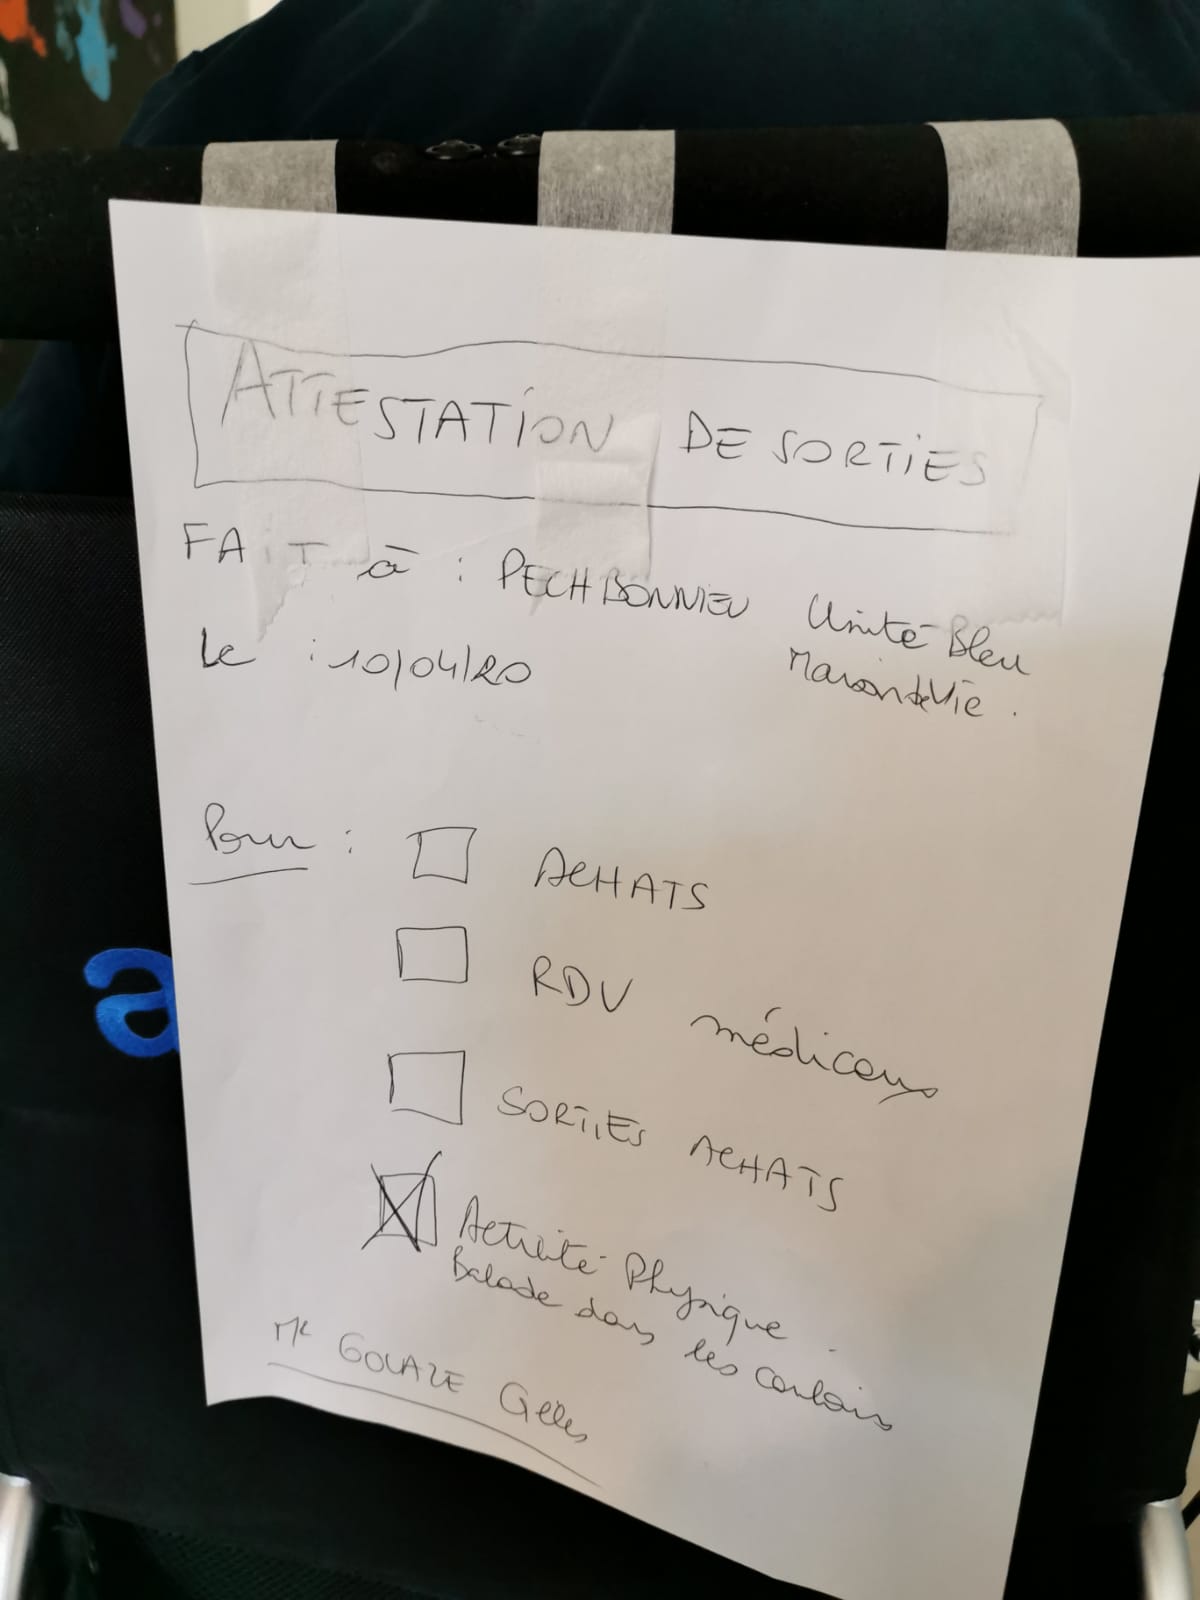 ATTESTATION DE SORTIES
FAIT à : PECHBONNIEU Unité Bleu
Maison de Vie.
Le : 10/04/20
Pour :
ACHATS
RDV médicaux
SORTIES ACHATS
Activité Physique.
Balade dans les couloirs
Mr GOUAZE Gilles
a